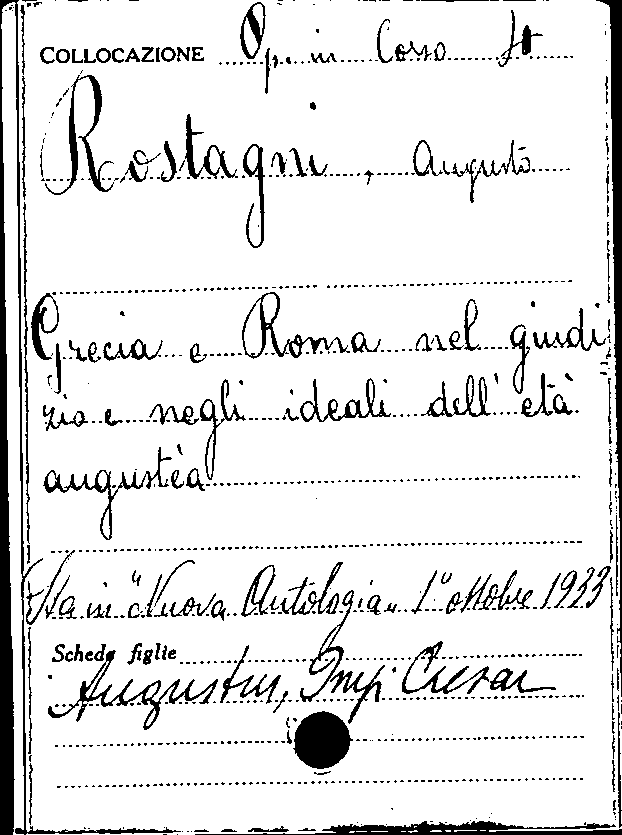 COLLOCAZIONE Op. in Corso St
Rostagni, Augusto
Grecia e Roma nel giudi
zio e negli ideali dell'età
augustèa
Sta in "Nuova Antologia" 1° ottobre 1933
Schede figlie
Augustus, Imp. Caesar